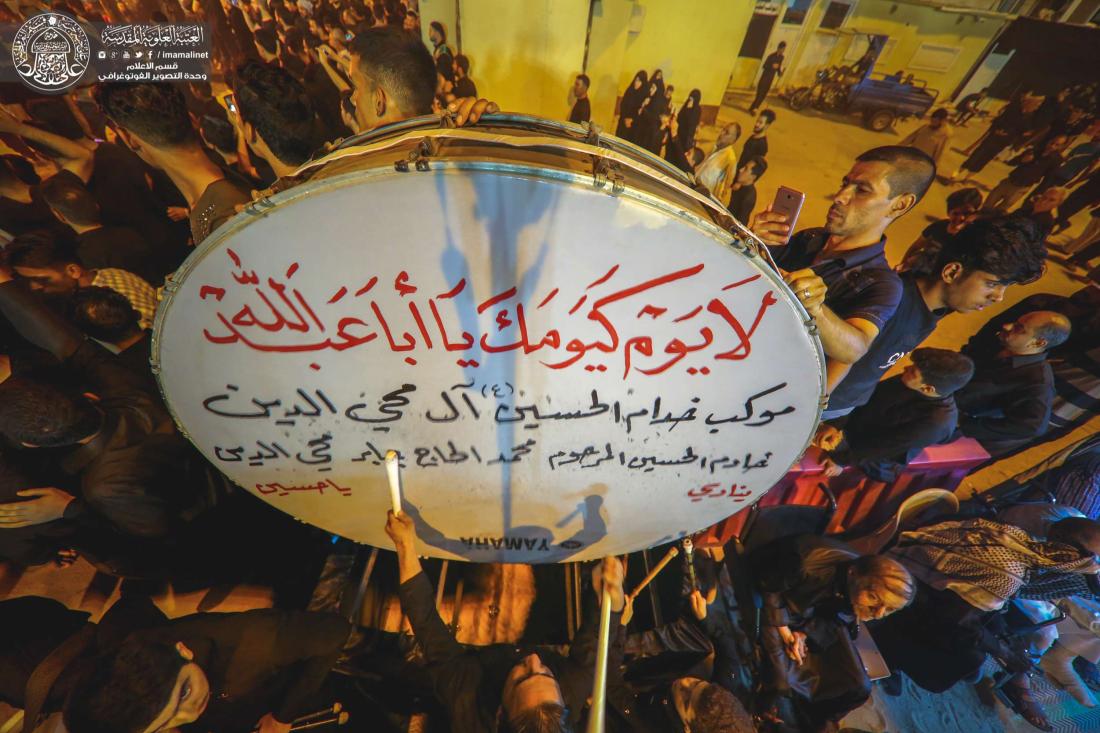 العتبة العلوية المقدسة
/ imamalinet
قسم الاعلام
وحدة التصوير الفوتوغرافي
لَا يَوْم كَيَومِكَ يَا أَبَا عَبدِ اللَّهِ
موكب خدام الحسين (٤) آل محي الدين
خادم الحسين المرحوم محمد الحاج جابر محي الدين
ينادي ياحسين
YAMAHA